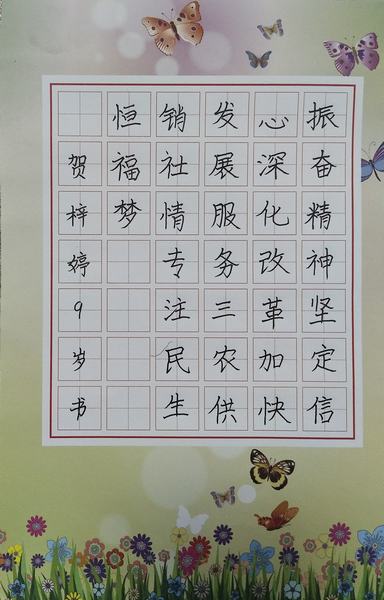 振奋精神坚定信
心深化改革加快
发展服务三农供
销社情专注民生
恒福梦
贺梓婷9岁书